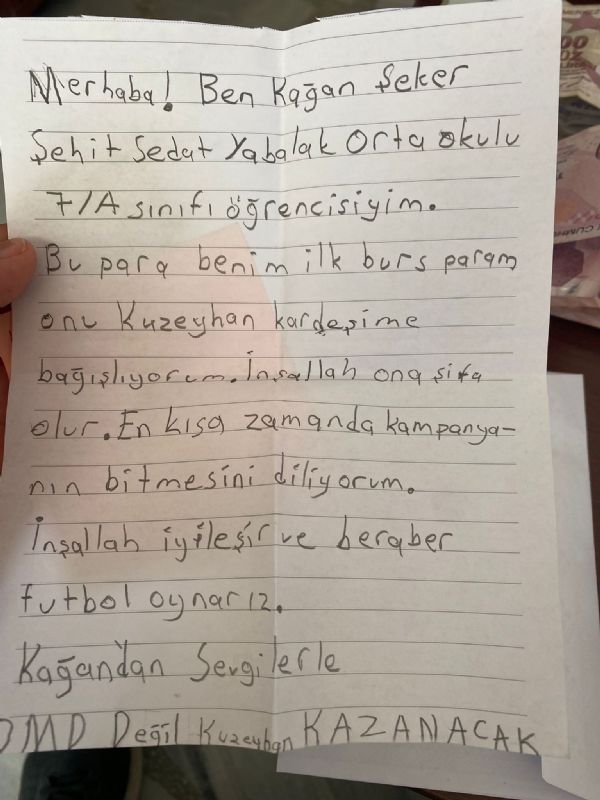 Merhaba! Ben Kağan Şeker
Şehit Sedat Yabalak Orta okulu
7/A sınıfı öğrencisiyim.
Bu para benim ilk burs param
onu Kuzeyhan kardeşime
bağışlıyorum. İnşallah ona şifa
olur. En kısa zamanda kampanya-
nın bitmesini diliyorum.
İnşallah iyileşir ve beraber
futbol oynarız.
Kağan'dan Sevgilerle
DMD Değil Kuzeyhan KAZANACAK